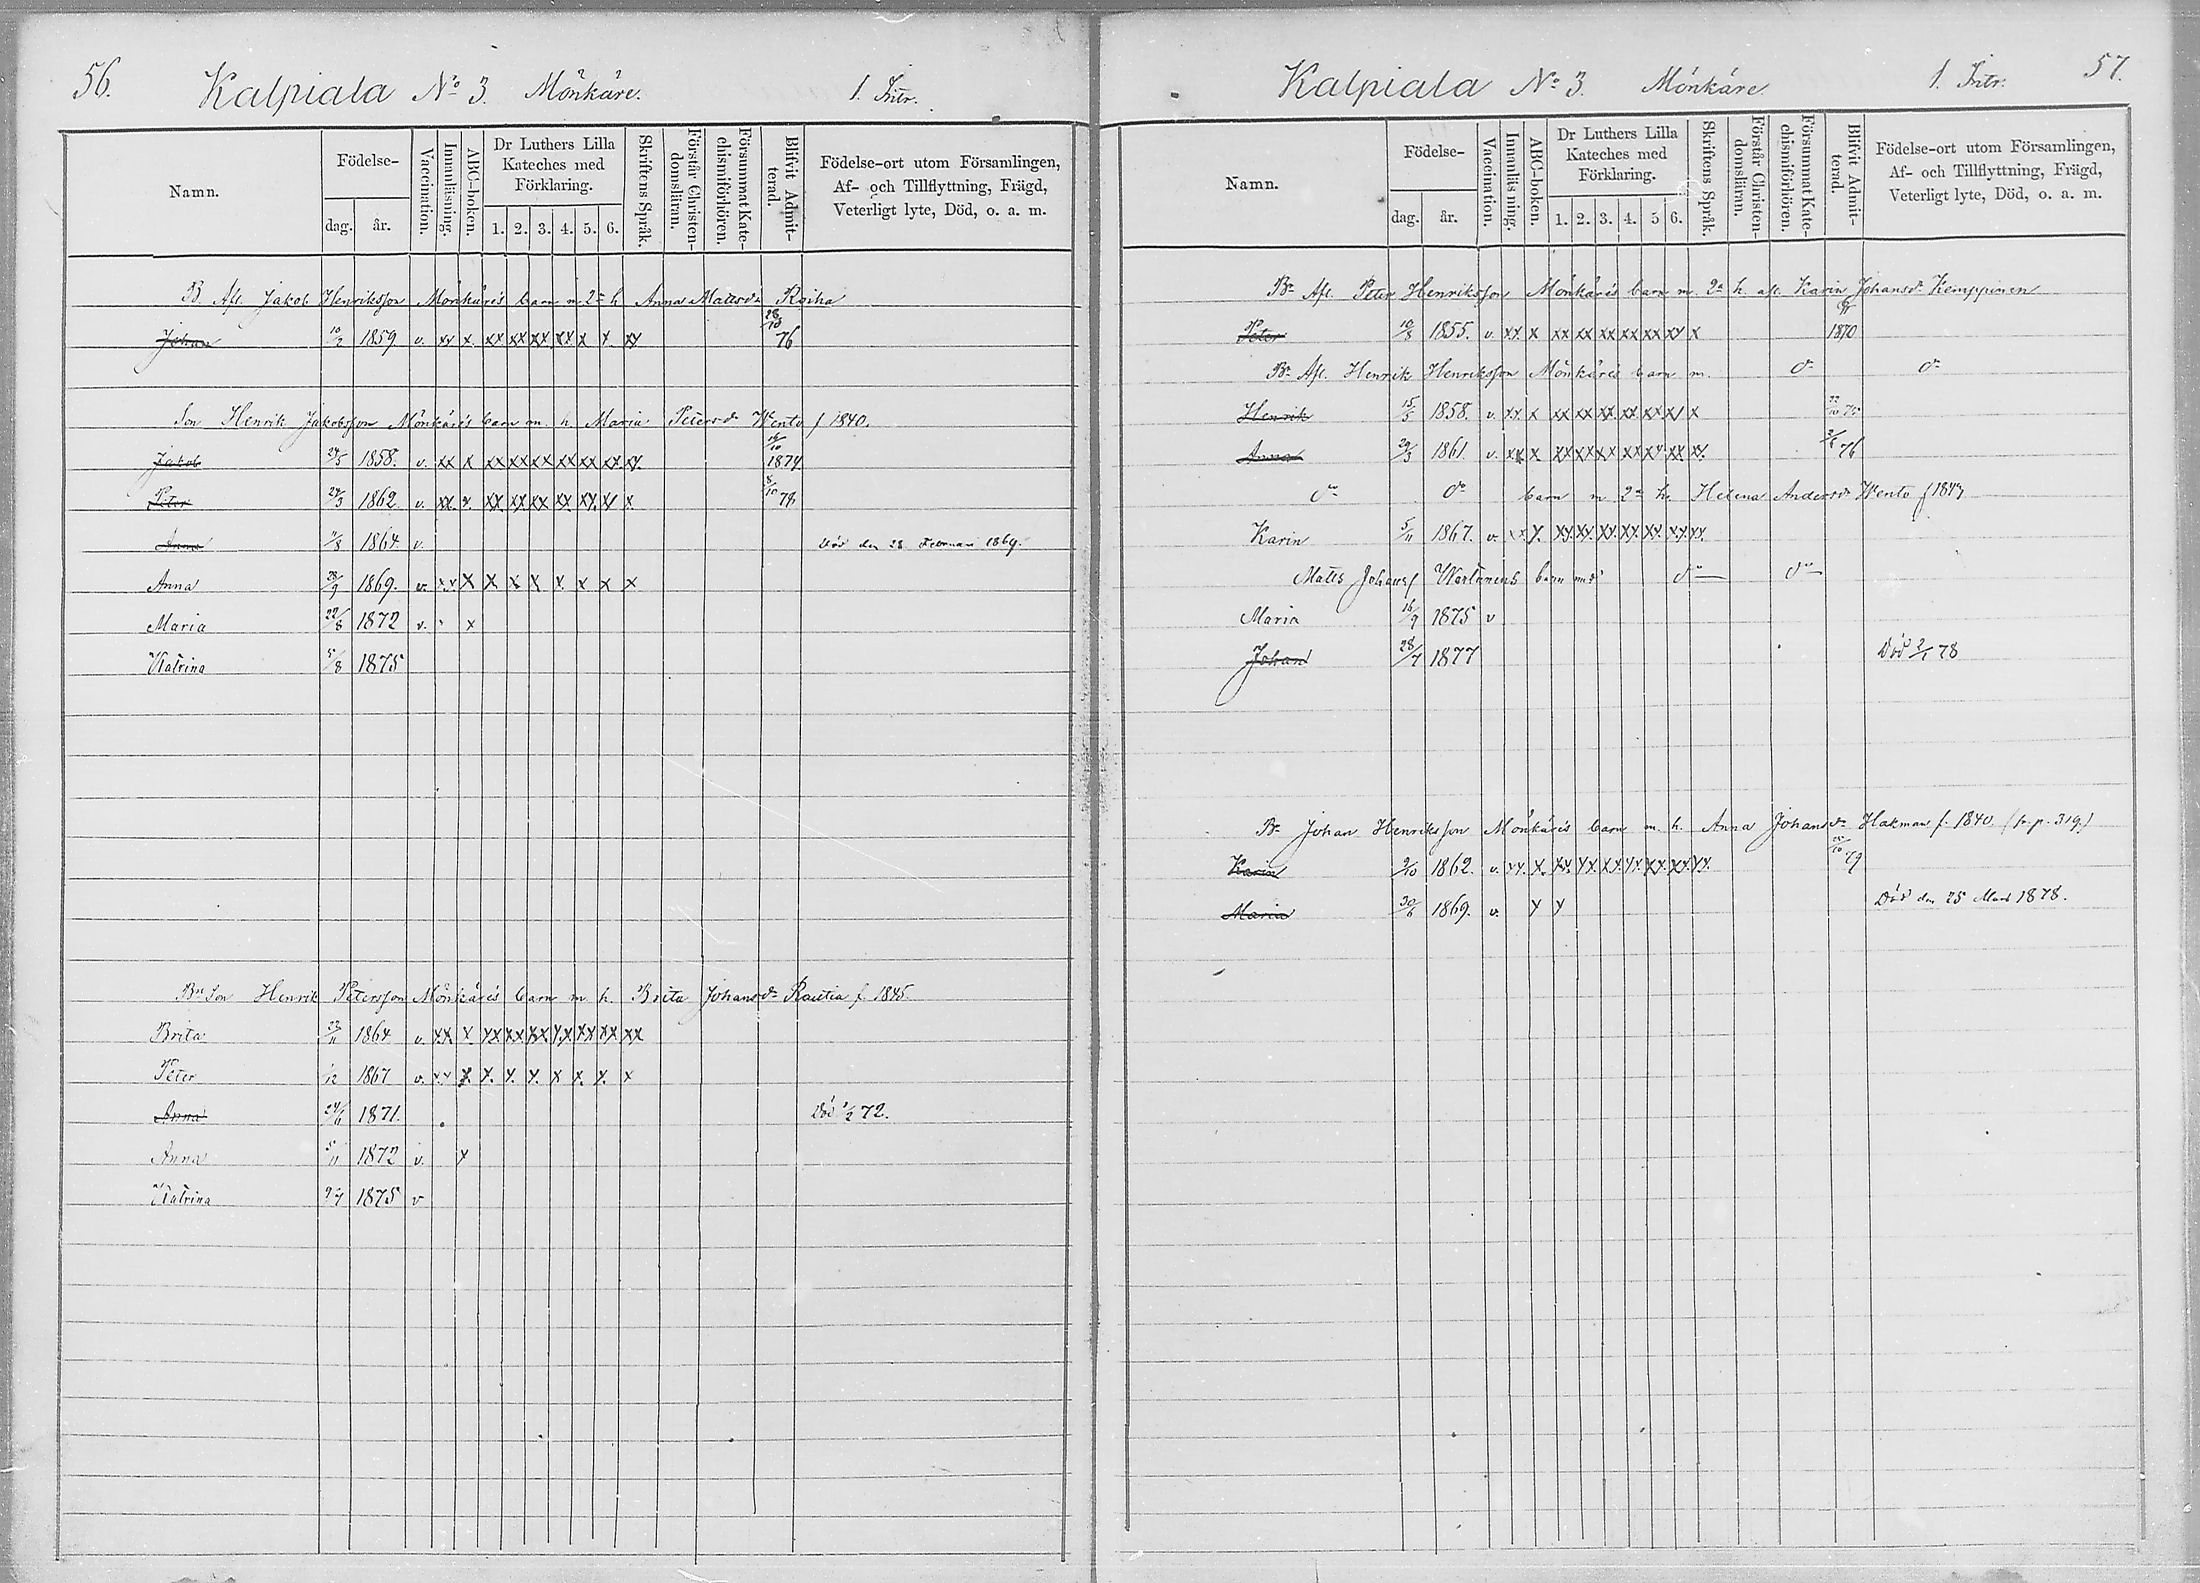 56. Kalpiala No 3. Mönkäre. 1. Intr.
Namn.
Födelse-
dag. år.
Vaccination.
Innanläsning.
ABC-boken.
Dr Luthers Lilla Kateches med Förklaring.
1. 2. 3. 4. 5. 6.
Skriftens Språk.
Förstår Christen-domsläran.
Försummat Kate-chismiförhören.
Blifvit Admit-terad.
Födelse-ort utom Församlingen, Af- och Tillflyttning, Frägd, Veterligt lyte, Död, o. a. m.
B. Afl. Jakob Henriksson Mönkäre's barn m 2a h Anna Mattsdr Roiha
Johan 10/2 1859 v. xx x. xx xx xx xx x x. xx 28/10 76
Son Henrik Jakobsson Mönkäre's barn m. h. Maria Petersdr Wento f 1840.
Jakob 24/5 1858. v. xx x xx xx xx xx xx xx xx. 1874
Peter 24/3 1862. v. xx. x. xx. xx. xx xx. xx. xx x. 8/10 78
Anna 11/8 1864. v. Död den 28 Februari 1869.
Anna 28/9 1869. v. xx X X x X x. x x x
Maria 22/8 1872 v. x
Katrina 5/8 1875
Br Son Henrik Petersson Mönkäre's barn m. h. Brita Johansdr Rautia f. 1845.
Brita 22/11 1864 v. xx x xx xx xx xx xx xx xx
Peter /12 1867 v. xx x x. x. x. x x. x. x
Anna 24/6 1871. Död 1/2 72.
Anna 5/11 1872 v. x
Katrina 9/7 1875 v
Kalpiala No 3. Mönkäre. 1. Intr. 57.
Namn.
Födelse-
dag. år.
Vaccination.
Innanläsning.
ABC-boken.
Dr Luthers Lilla Kateches med Förklaring.
1. 2. 3. 4. 5 6.
Skriftens Språk.
Förstår Christen-domsläran.
Försummat Kate-chismiförhören.
Blifvit Admit-terad.
Födelse-ort utom Församlingen, Af- och Tillflyttning, Frägd, Veterligt lyte, Död, o. a. m.
Br Afl. Peter Henriksson Mönkäre's barn m. 2a h. afl. Karin Johansdr Kemppinen
Peter 10/8 1855. v. xx. x xx xx xx xx xx xx x 1870
Br Afl. Henrik Henriksson Mönkäre's barn m. do do
Henrik 15/5 1858. v. xx. x xx xx xx. xx xx xx x 75
Anna 29/3 1861. v. xx x xx xx xx xx xx. xx xx. 76
do do barn m 2a h. Helena Andersdr Wento f 1847
Karin 5/11 1867. v. xx x. xx. xx. xx. xx. xx. xx. xx.
Matts Johansf Wartianens barn med do do
Maria 16/9 1875 v
Johan 28/7 1877 Död 2/1 78
Br Johan Henriksson Mönkäre's barn m. h. Anna Johansdr Hakman f. 1840 (fr. p. 319.)
Karin 9/10 1862. v. xx. x. xx. xx. xx. xx. xx. xx. xx. 79
Maria 30/6 1869. v. x x Död den 25 Mars 1878.